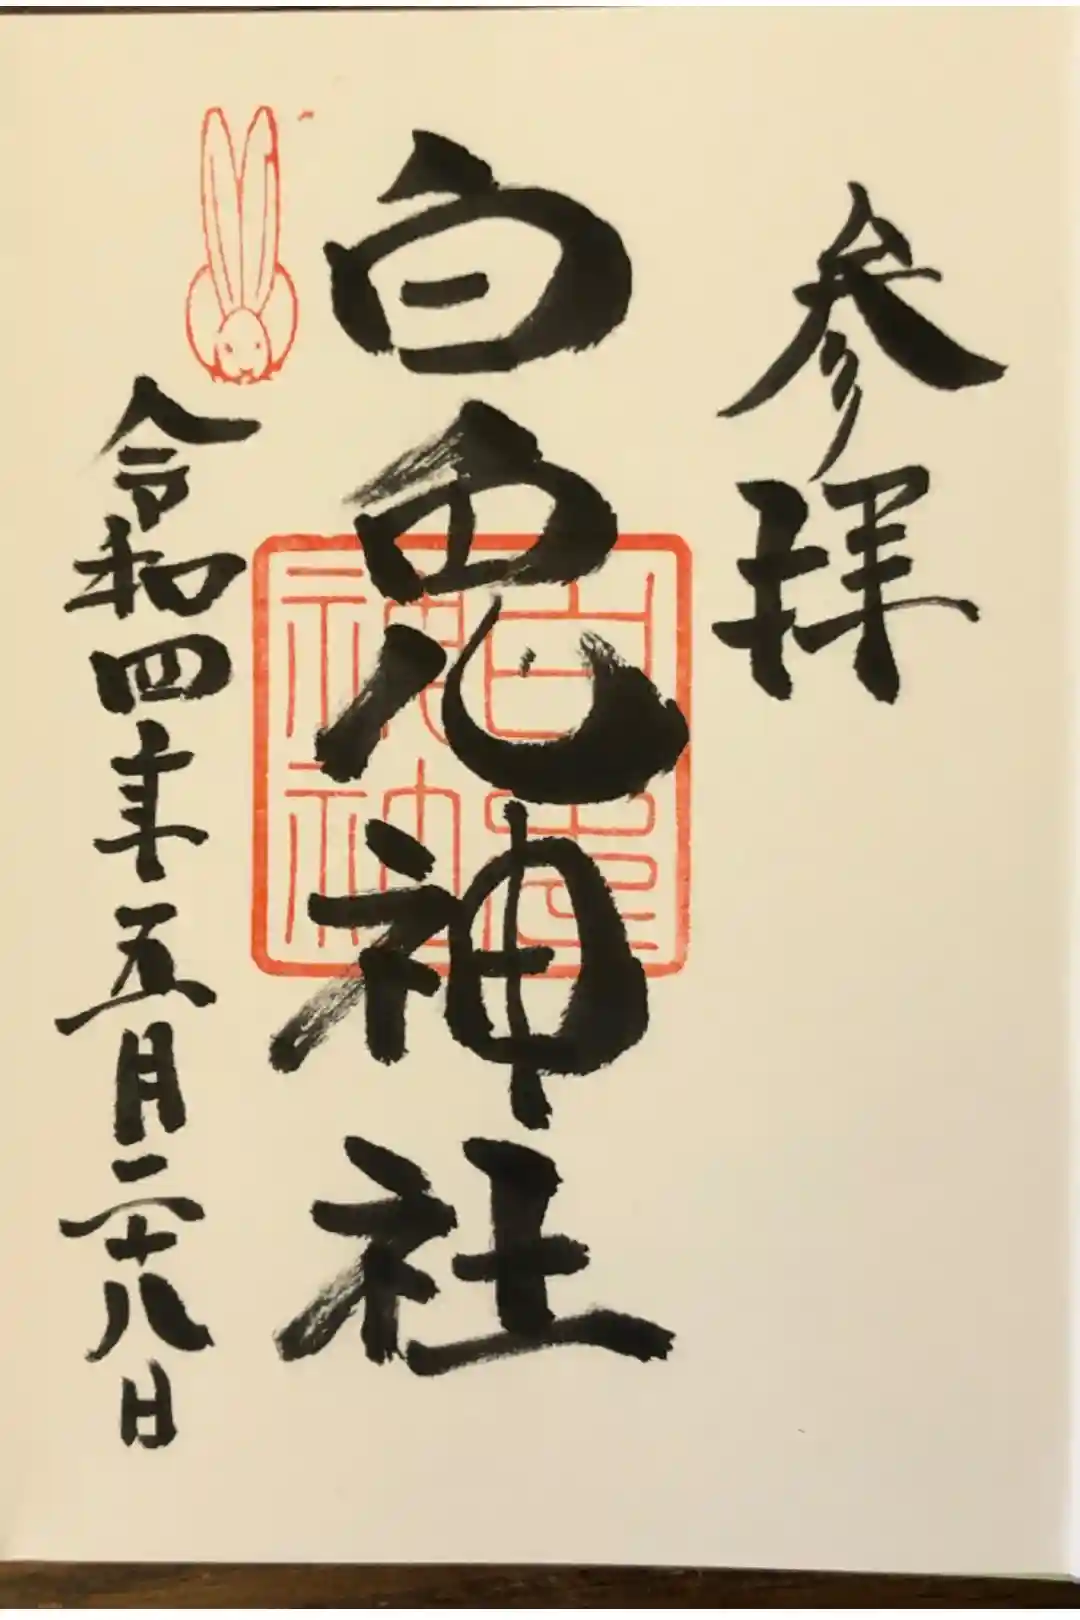 参拝
白兎神社
令和四年五月二十八日
白兎神社